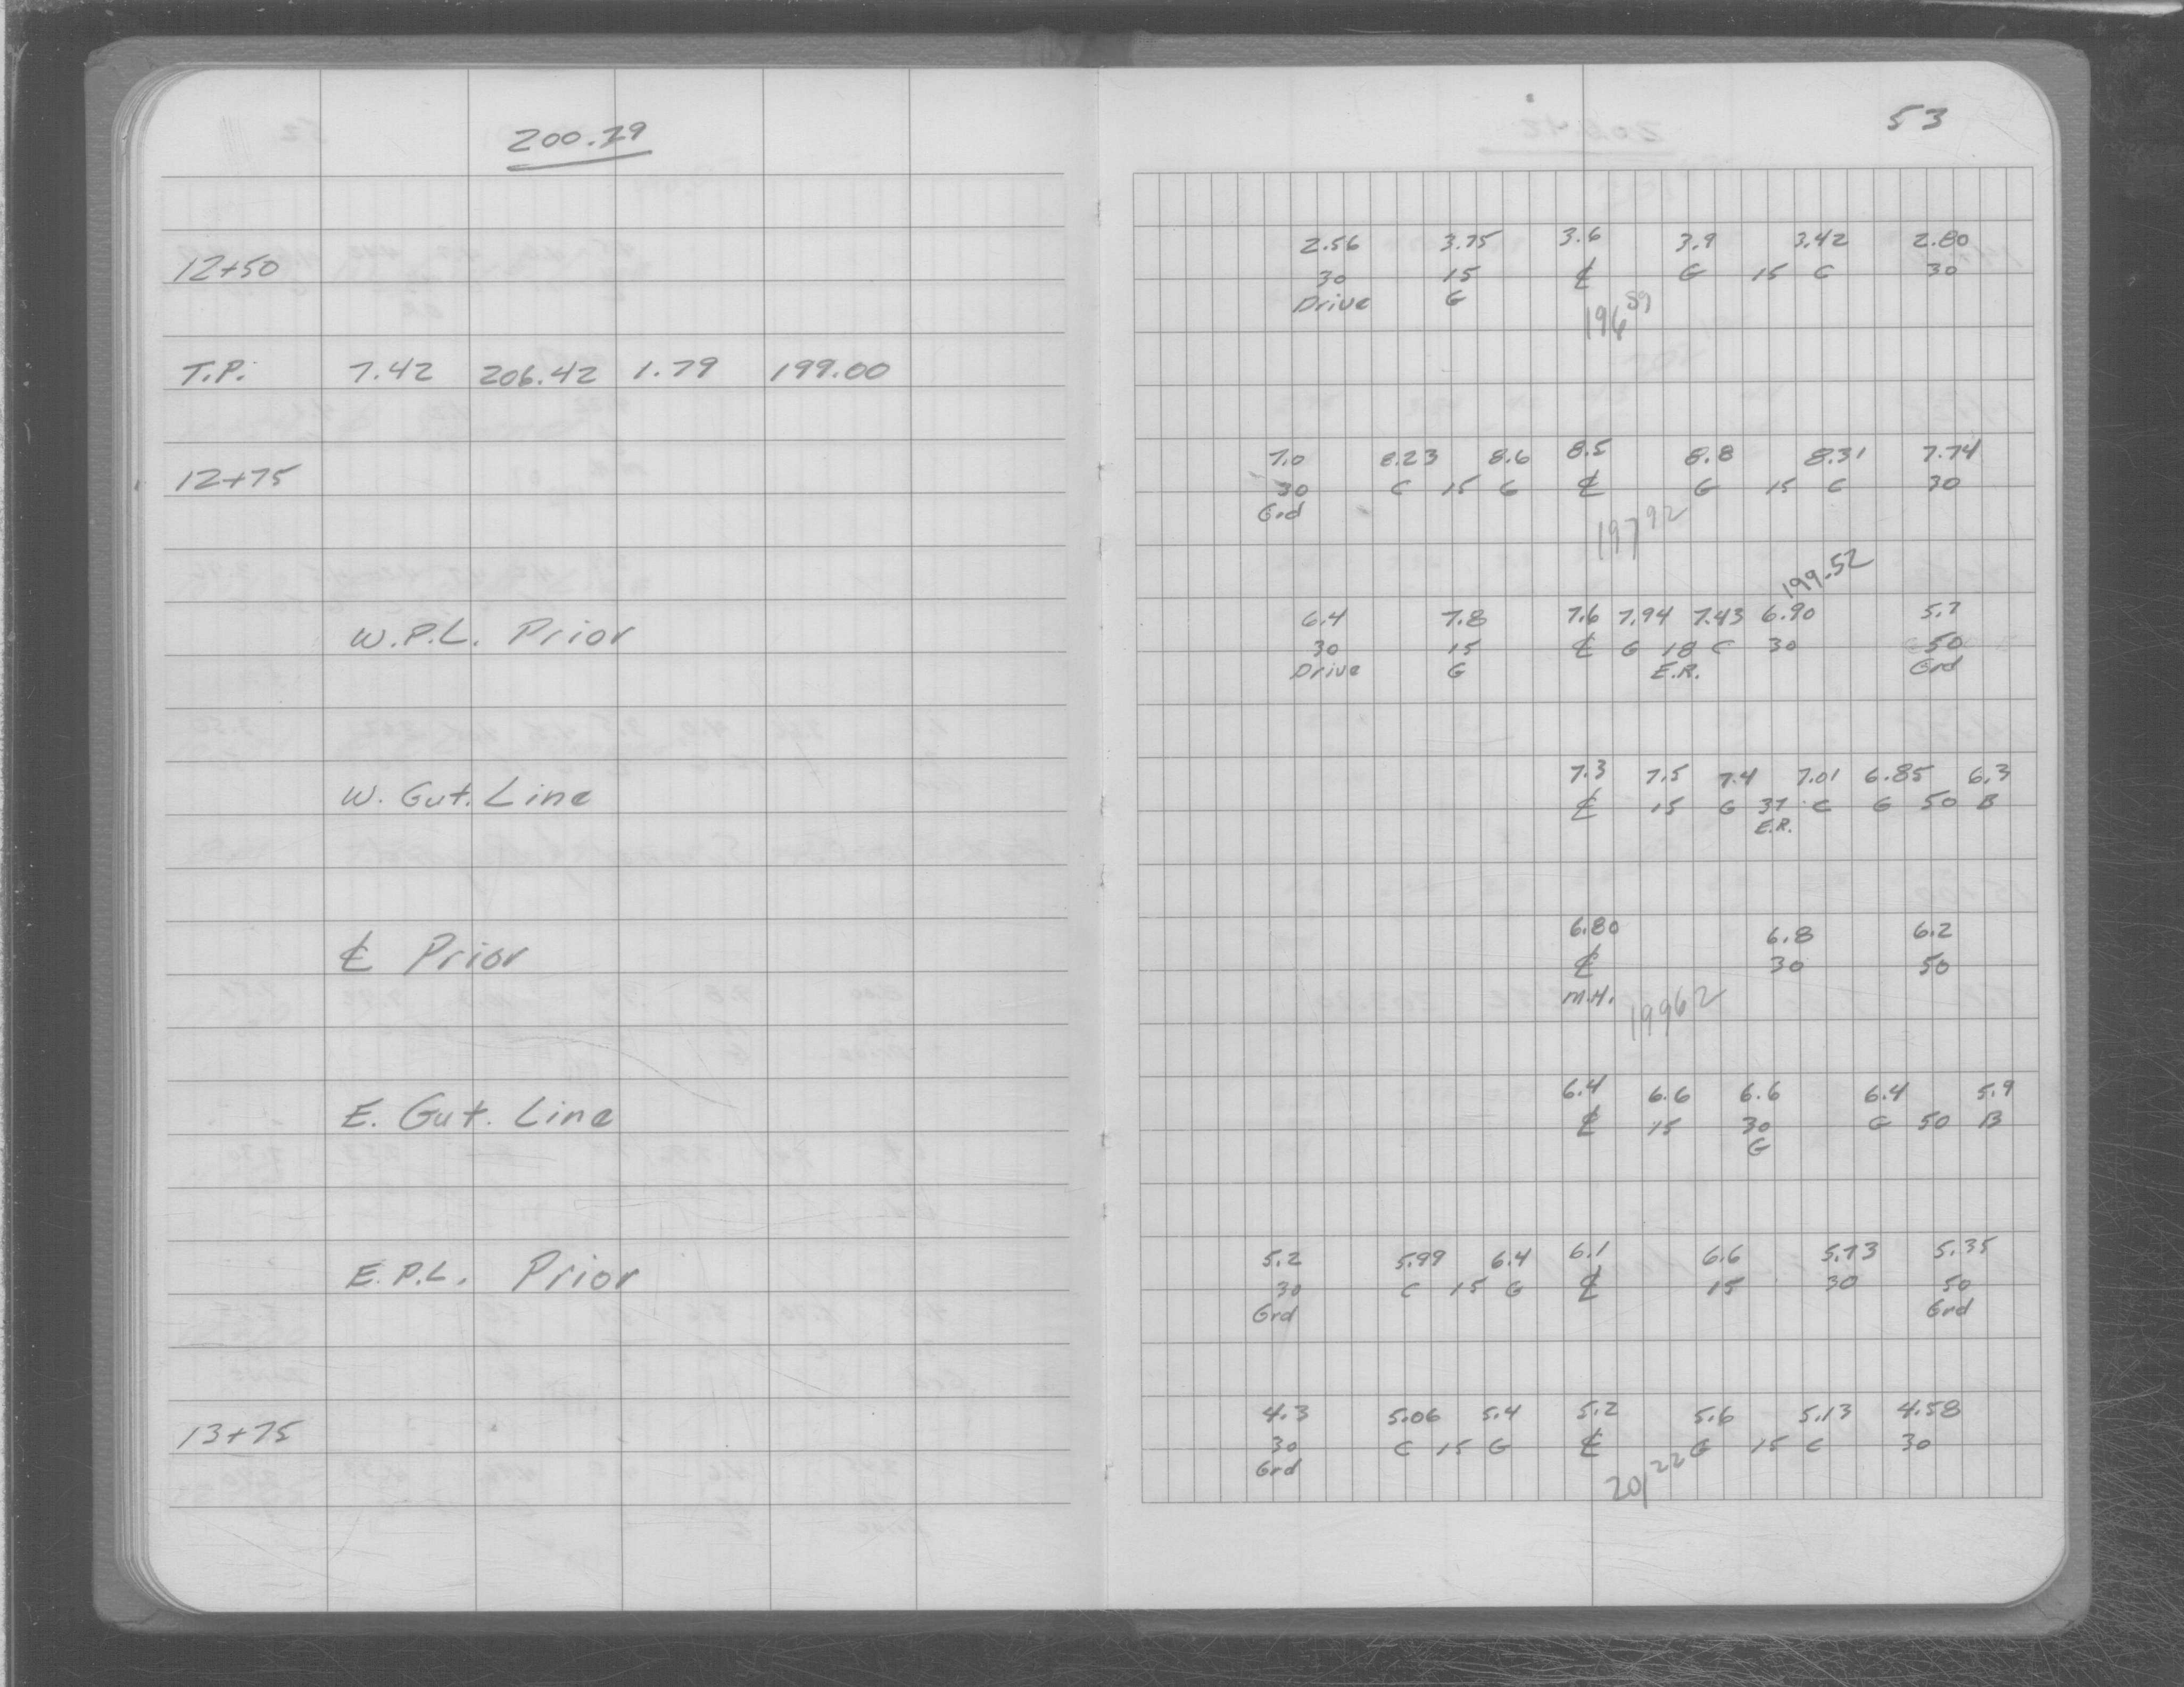 200.79
53
2.56 3.75 3.6 3.9 3.42 2.80
12+50 30 15 ℄ G 15 C 30
Drive G
196.59
T.P. 7.42 206.42 1.79 199.00
7.0 8.23 8.6 8.5 8.8 8.31 7.74
12+75 30 C 15 G ℄ G 15 C 30
Grd
197.92
199.52
6.4 7.8 7.6 7.94 7.43 6.90 5.7
W.P.L. Prior 30 15 ℄ G 18 C 30 50
Drive G E.R. Grd
7.3 7.5 7.4 7.01 6.85 6.3
W. Gut. Line ℄ 15 G 37 C G 50 B
E.R.
6.80 6.8 6.2
℄ Prior ℄ 30 50
M.H. 199 62
6.4 6.6 6.6 6.4 5.9
E. Gut. Line ℄ 15 30 G 50 B
G
5.2 5.99 6.4 6.1 6.6 5.73 5.35
E.P.L. Prior 30 C 15 G ℄ 15 30 50
Grd Grd
4.3 5.06 5.4 5.2 5.6 5.13 4.58
13+75 30 C 15 G ℄ G 15 C 30
Grd
201.22